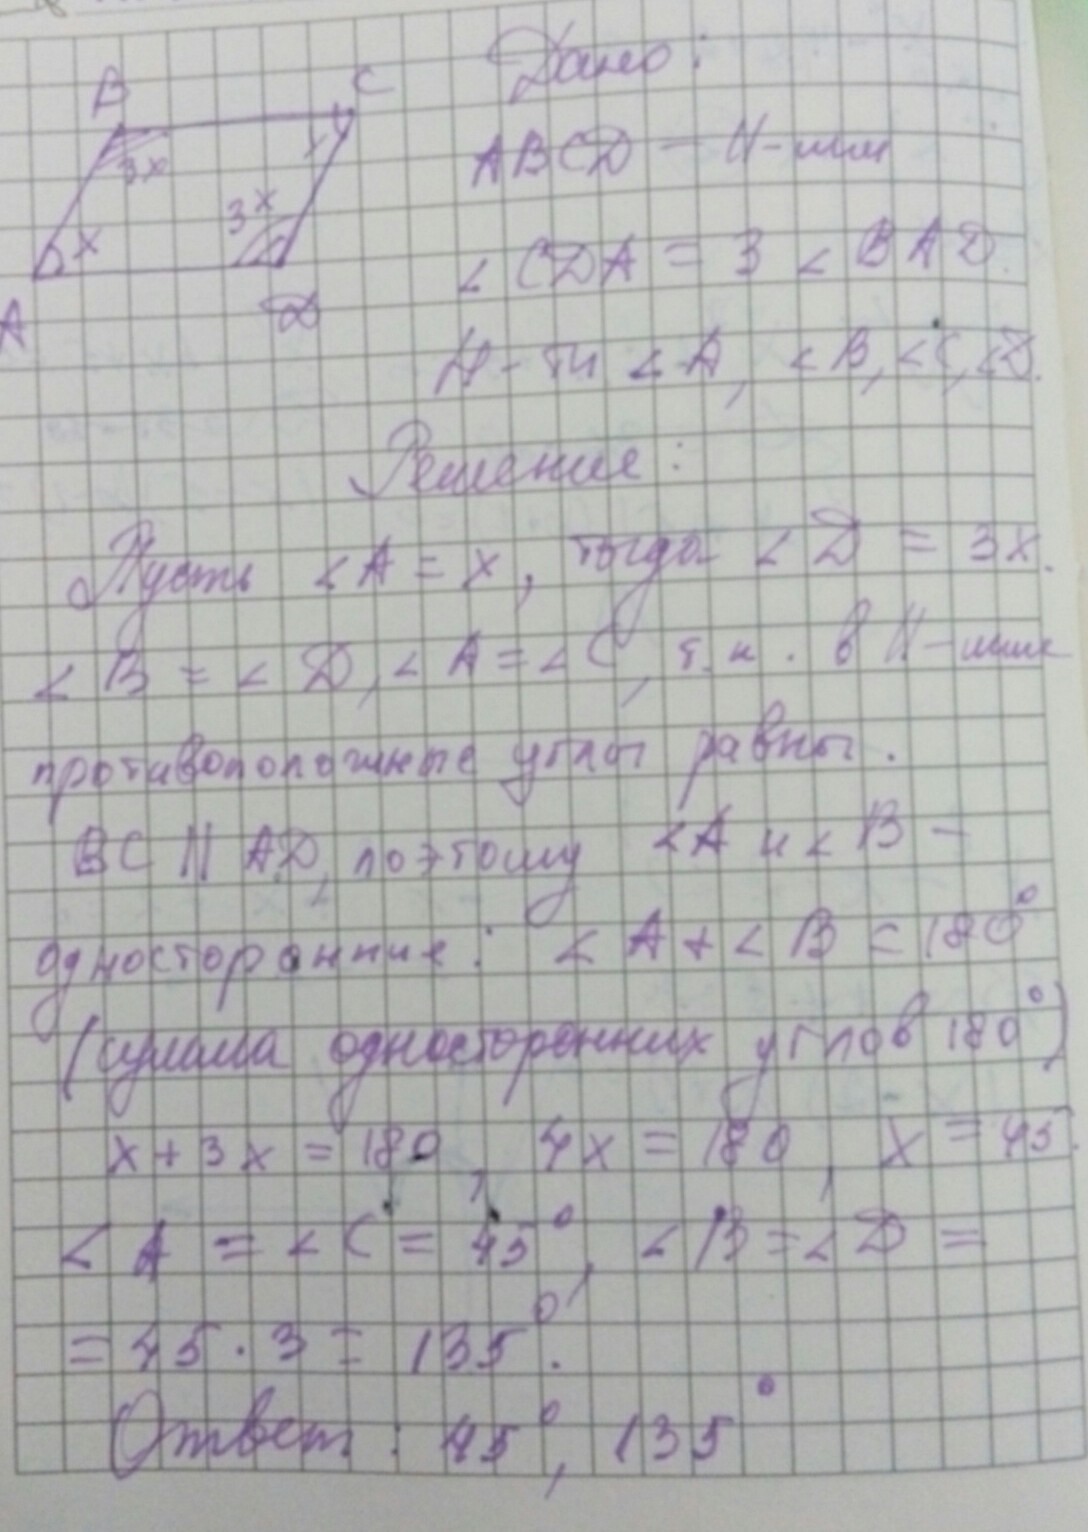 B
C
3x
x
3x
x
A
D
Дано:
ABCD – II-мм
∠CDA = 3 ∠BAD.
Н-ти ∠A, ∠B, ∠C, ∠D.
Решение:
Пусть ∠A = x, тогда ∠D = 3x.
∠B = ∠D, ∠A = ∠C, т.к. в II-мме
противоположные углы равны.
BC II AD, поэтому ∠A и ∠B –
односторонние: ∠A + ∠B = 180°
(сумма односторонних углов 180°)
x + 3x = 180, 4x = 180, x = 45.
∠A = ∠C = 45°, ∠B = ∠D =
= 45 · 3 = 135°.
Ответ: 45°, 135°